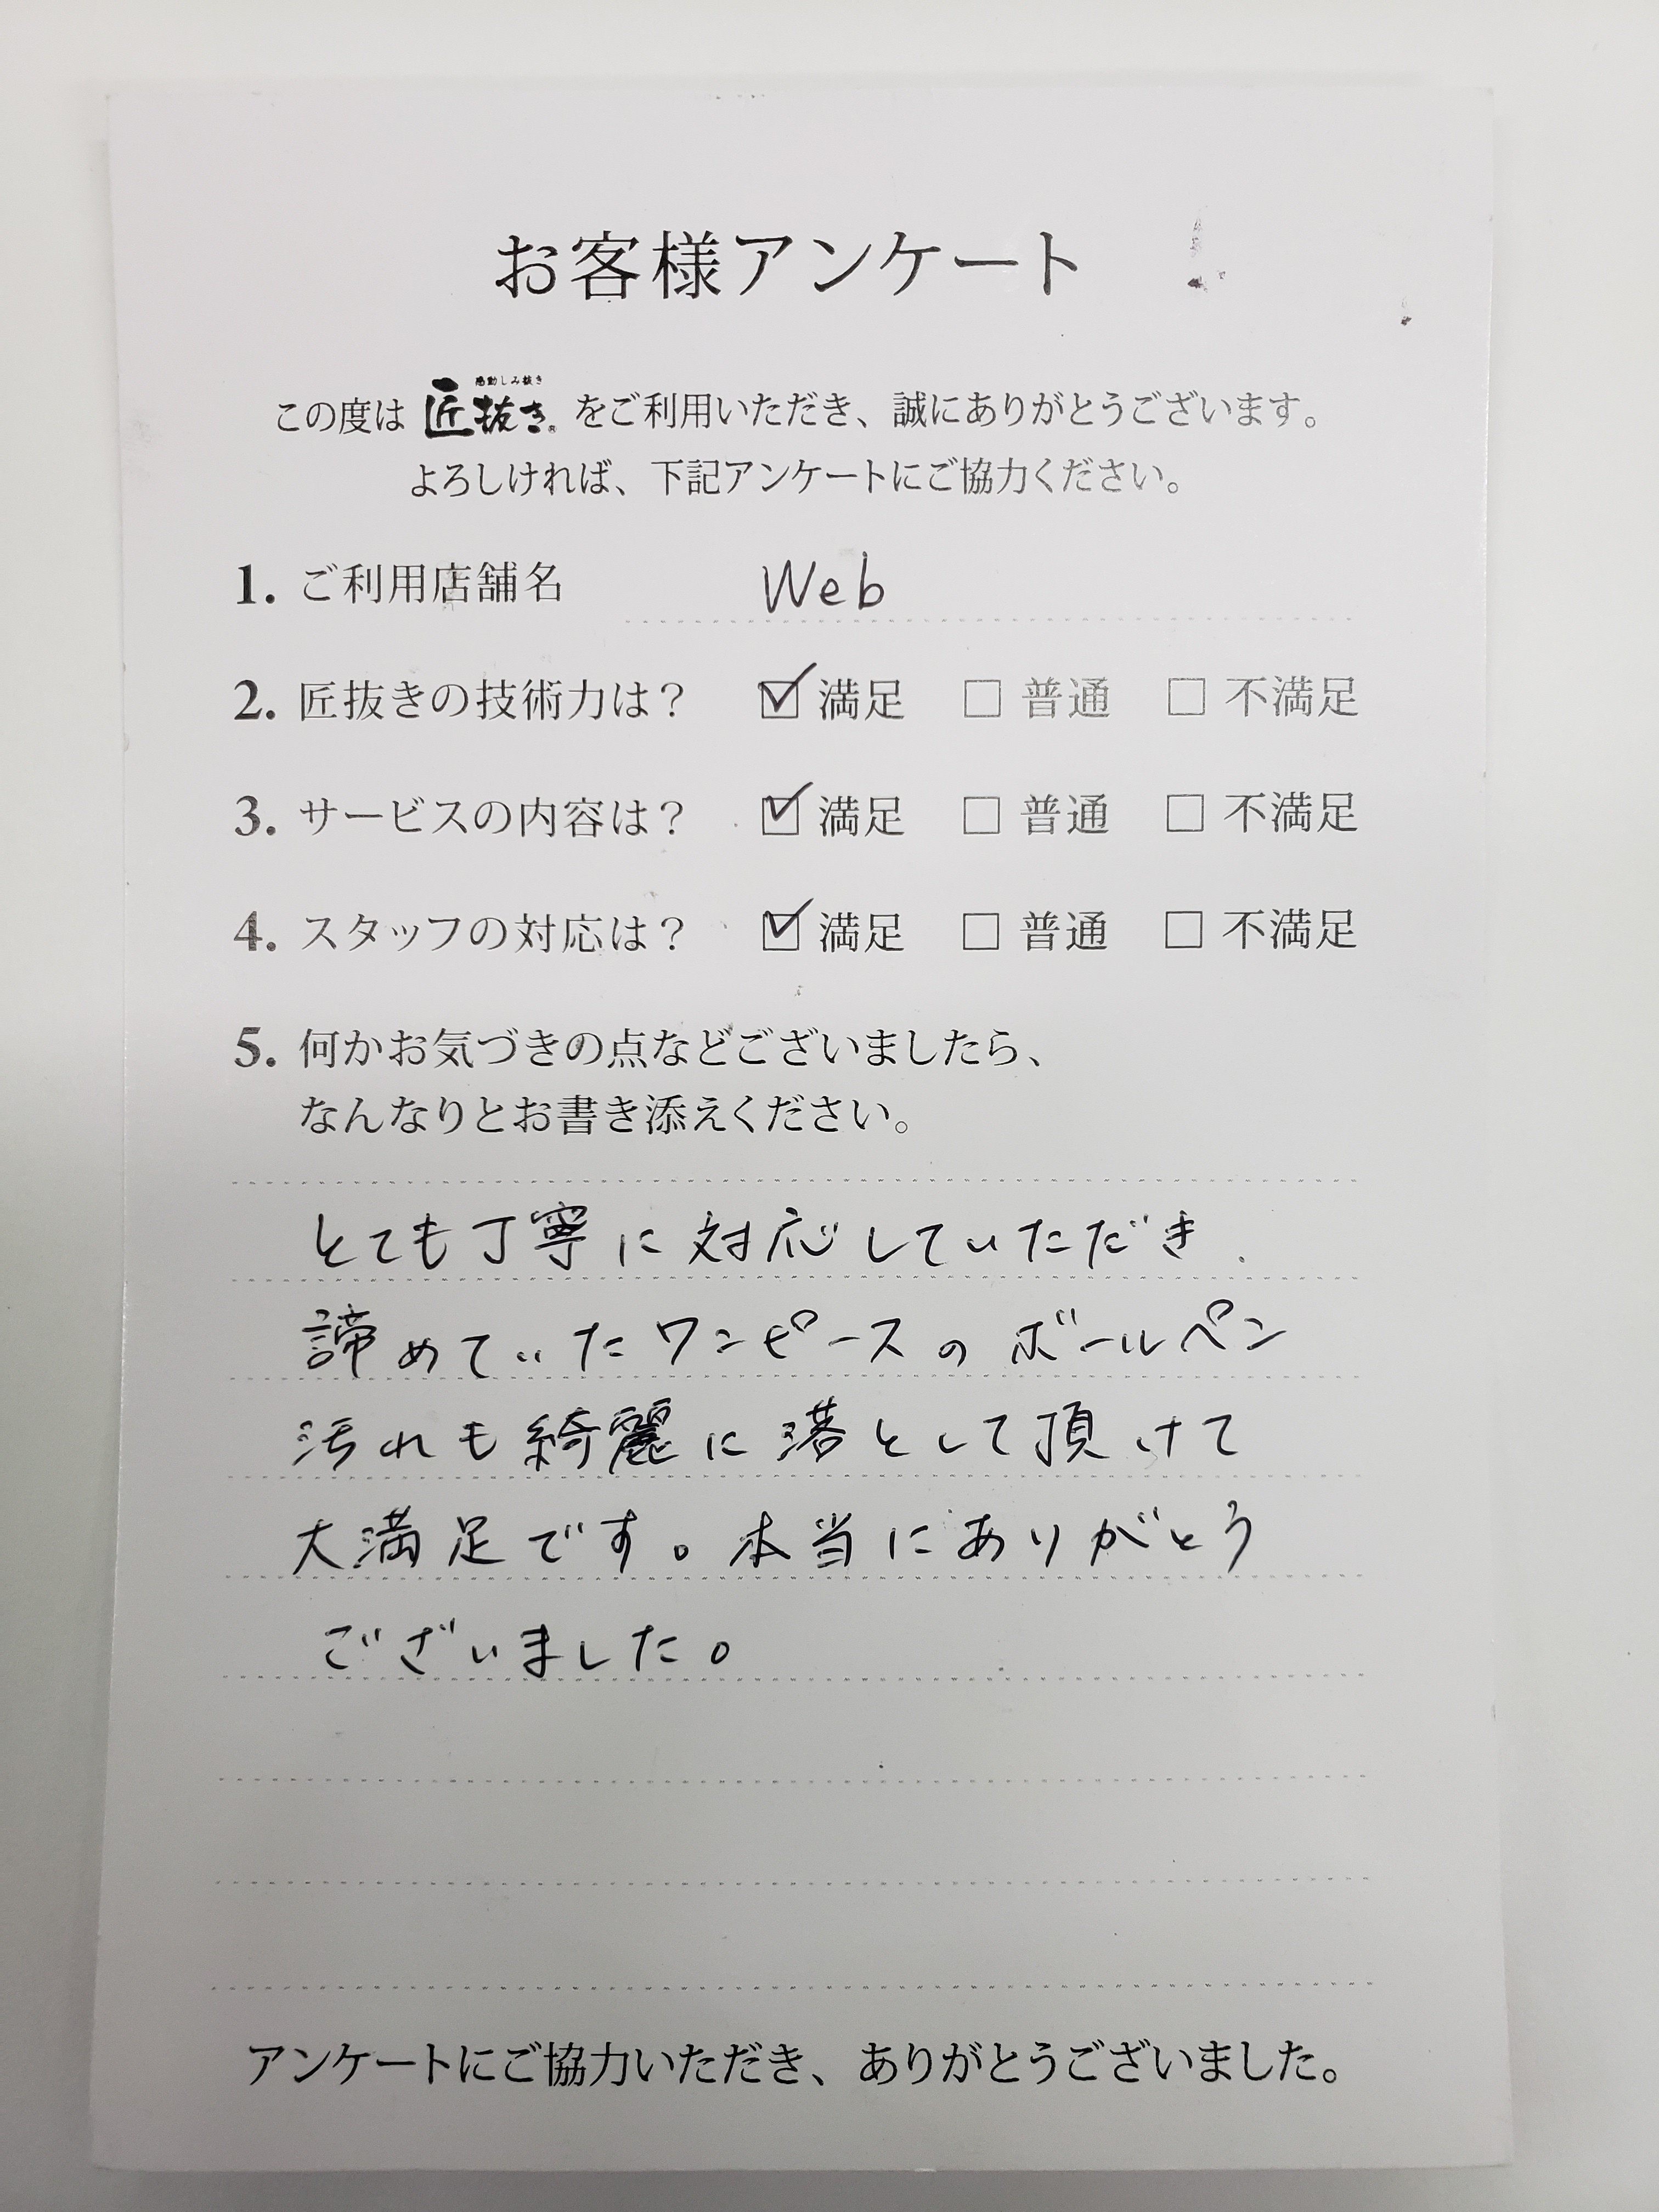 お客様アンケート
感動しみ抜き
この度は 匠抜き® をご利用いただき、誠にありがとうございます。
よろしければ、下記アンケートにご協力ください。
1. ご利用店舗名 Web
2. 匠抜きの技術力は? ☑ 満足 □ 普通 □ 不満足
3. サービスの内容は? ☑ 満足 □ 普通 □ 不満足
4. スタッフの対応は? ☑ 満足 □ 普通 □ 不満足
5. 何かお気づきの点などございましたら、
なんなりとお書き添えください。
とても丁寧に対応していただき、
諦めていたワンピースのボールペン
汚れも綺麗に落として頂けて
大満足です。本当にありがとう
ございました。
アンケートにご協力いただき、ありがとうございました。